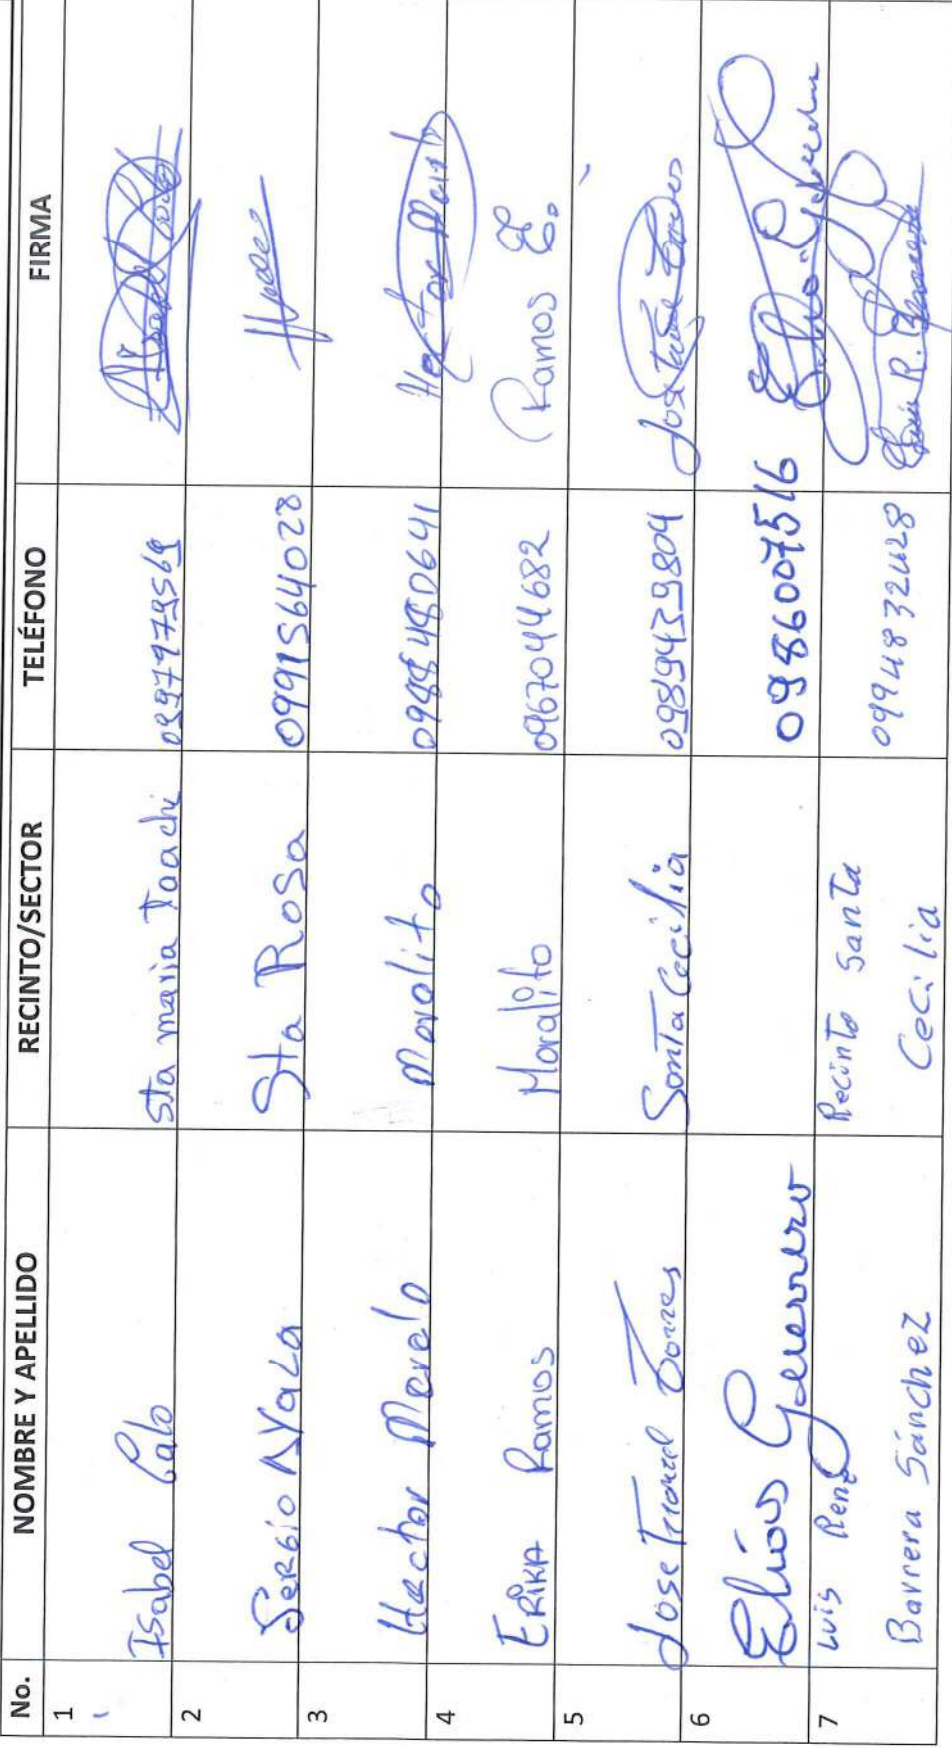 No. NOMBRE Y APELLIDO RECINTO/SECTOR TELÉFONO FIRMA
1 Isabel Calo Sta maria Toachi 0997979569
2 Sergio Ayala Sta Rosa 0991564028
3 Hector Merelo Moralito 0998480641 Hector
4 Erika Ramos Moralito 0967044682 Ramos E.
5 Jose Torres Santa Cecilia 0989439804 Jose Torres
6 Elvios Guerrero 0986007516
7 Luis René Recinto Santa
Barrera Sánchez Cecilia 0994832428 Luis R. Barrera